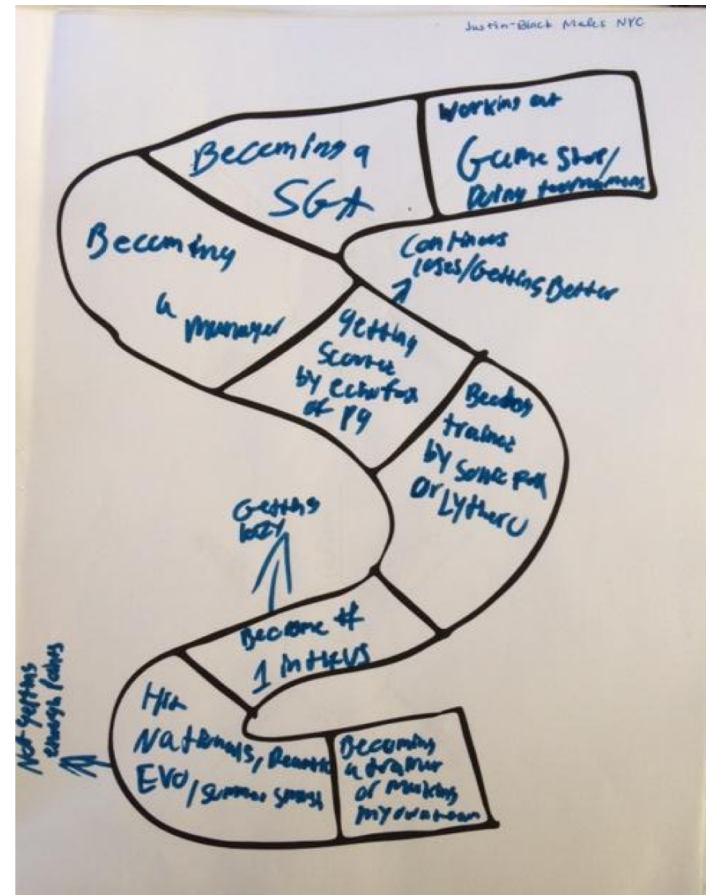 Justin-Black Males NYC
Working at
Game Stop/
Doing tournaments
Becoming a
SGA
Becoming
a
manager
Continuos
loses/Getting Better
getting
by echofox
or PG
trainee
by Sonic Fox
or LytherU
Getting
lazy
Become #
1 in the US
Not getting
enough points
Hit
Nationals,
EVO/Summer Smash
Becoming
a trainer
or making
my own team